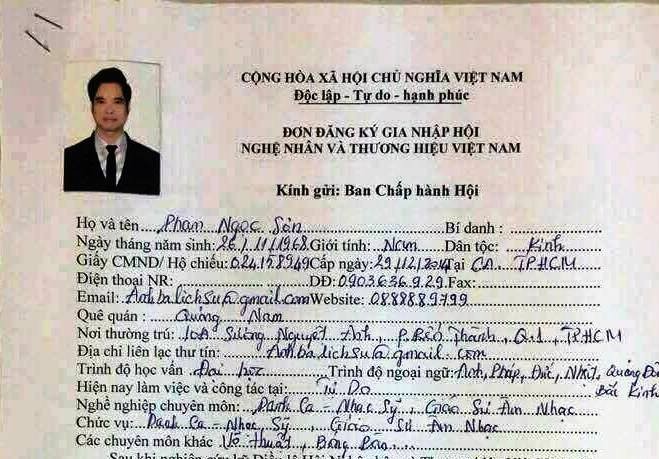 CỘNG HÒA XÃ HỘI CHỦ NGHĨA VIỆT NAM
Độc lập - Tự do - hạnh phúc
ĐƠN ĐĂNG KÝ GIA NHẬP HỘI
NGHỆ NHÂN VÀ THƯƠNG HIỆU VIỆT NAM
Kính gửi: Ban Chấp hành Hội
Họ và tên....Phạm Ngọc Sơn..........Bí danh :
Ngày tháng năm sinh:26/11/1968.Giới tính:..Nam....Dân tộc:..Kinh
Giấy CMND/ Hộ chiếu:024158949Cấp ngày:29/12/2014Tại CA. TPHCM
Điện thoại NR:..............DĐ:0903636.929.Fax:
Email:Anhbalichsu@gmail.comWebsite: 0888889799
Quê quán :.......Quảng Nam
Nơi thường trú:..10A Sương Nguyệt Ánh, P.Bến Thành, Q.1, TPHCM
Địa chỉ liên lạc thư tín:....Anhbalichsu@gmail.com
Trình độ học vấn...Đại học........Trình độ ngoại ngữ:Anh, Pháp, Đức, Nhật, Quảng Đông
Bắc Kinh
Hiện nay làm việc và công tác tại:....Tự Do
Nghề nghiệp chuyên môn:..Danh Ca - Nhạc Sỹ, Giáo Sư Âm Nhạc
Chức vụ:..Danh Ca - Nhạc Sỹ, Giáo Sư Âm Nhạc
Các chuyên môn khác Võ thuật, Bóng Bàn...